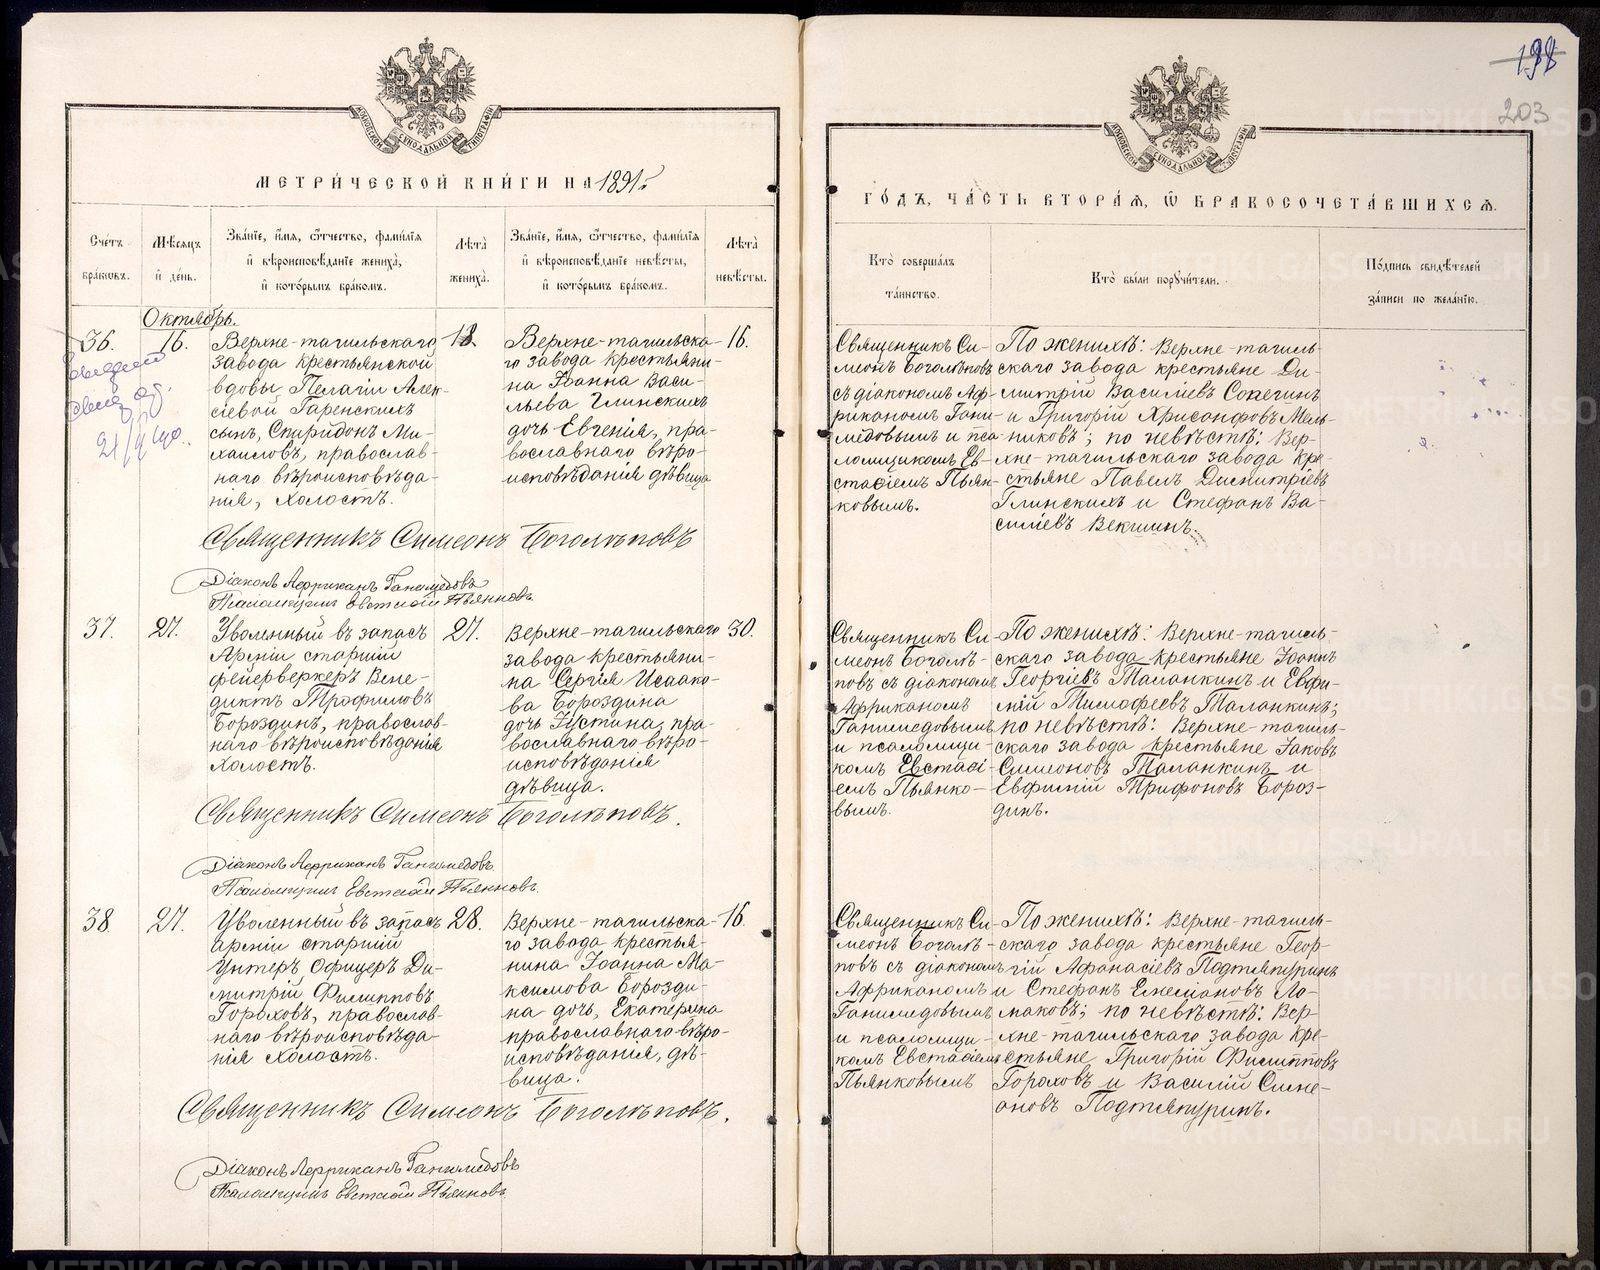 198
203
МОСКОВСКОЙ СѴНОДАЛЬНОЙ ТИПОГРАФІИ
МЕТРИ́ЧЕСКОЙ КНИ́ГИ НА 1891 г.
Сче́тъ бра́ковъ.
Мѣ́сяцъ и҆ де́нь.
Зва́нїе, и҆́мѧ, ѻ҆́тчество, фами́лїѧ и҆ вѣроисповѣ́данїе жениха̀, и҆ кото́рымъ бра́комъ.
Лѣ́та жениха̀.
Зва́нїе, и҆́мѧ, ѻ҆́тчество, фами́лїѧ и҆ вѣроисповѣ́данїе невѣ́сты, и҆ кото́рымъ бра́комъ.
Лѣ́та невѣ́сты.
Октябрь.
36.
16.
Верхне-тагильскаго
завода крестьянской
вдовы Пелагіи Алек-
сіевой Гаренскихъ
сынъ, Спиридонъ Ми-
хаиловъ, православ-
наго вѣроисповѣда-
нія, холостъ.
18.
Верхне-тагильска-
го завода крестьяни-
на Іоанна Васи-
льева Глинскихъ
дочь Евгенія, пра-
вославнаго вѣро-
исповѣданія дѣвица
16.
Священникъ Симеонъ Боголѣповъ
Діаконъ Африканъ Ганимедовъ
Псаломщикъ Евстаѳій Пьянковъ
37.
27.
Уволенный въ запасъ
Арміи старшій
фейерверкеръ Вене-
диктъ Трофимовъ
Бороздинъ, православ-
наго вѣроисповѣданія
холостъ.
27.
Верхне-тагильскаго
завода крестьяни-
на Сергія Исаако-
ва Бороздина
дочь Іустина, пра-
вославнаго вѣро-
исповѣданія
дѣвица.
30.
Священникъ Симеонъ Боголѣповъ.
Діаконъ Африканъ Ганимедовъ
Псаломщикъ Евстаѳій Пьянковъ.
38
27.
Уволенный въ запасъ
арміи старшій
Унтеръ Офицеръ Ди-
митрій Филипповъ
Гороховъ, православ-
наго вѣроисповѣда-
нія холостъ.
28.
Верхне-тагильска-
го завода крестья-
нина Іоанна Ма-
ксимова Борозди-
на дочь, Екатерина
православнаго вѣро-
исповѣданія, дѣ-
вица.
16.
Священникъ Симеонъ Боголѣповъ.
Діаконъ Африканъ Ганимедовъ
Псаломщикъ Евстаѳій Пьянковъ
МОСКОВСКОЙ СѴНОДАЛЬНОЙ ТИПОГРАФІИ
ГО́ДЪ, ЧА́СТЬ ВТОРА́Ѧ, Ѽ БРАКОСОЧЕТА́ВШИХСѦ.
Кто̀ соверша́лъ та́инство.
Кто̀ бы́ли порꙋчи́тели.
По́дпись свидѣ́телей за́писи по жела́нїю.
Священникъ Си-
меонъ Боголѣповъ
съ діакономъ Аф-
риканомъ Гани-
медовымъ и пса-
ломщикомъ Ев-
стаѳіемъ Пьян-
ковымъ.
По женихѣ: Верхне-тагиль-
скаго завода крестьяне Ди-
митрій Василіевъ Сопегинъ
и Григорій Хрисанфовъ Мель-
никовъ; по невѣстѣ: Вер-
хне-тагильскаго завода кре-
стьяне Павелъ Димитріевъ
Глинскихъ и Стефанъ Ва-
силіевъ Векшинъ.
Священникъ Си-
меонъ Боголѣ-
повъ съ діакономъ
Африканомъ
Ганимедовымъ
и псаломщи-
комъ Евстаѳі-
емъ Пьянко-
вымъ.
По женихѣ: Верхне-тагиль-
скаго завода крестьяне Іоаннъ
Георгіевъ Таланкинъ и Евфи-
мій Тимофеевъ Таланкинъ;
по невѣстѣ: Верхне-тагиль-
скаго завода крестьяне Іаковъ
Симеоновъ Таланкинъ и
Евфимій Трифоновъ Бороз-
динъ.
Священникъ Си-
меонъ Боголѣ-
повъ съ діакономъ
Африканомъ
Ганимедовымъ
и псаломщи-
комъ Евстаѳіемъ
Пьянковымъ
По женихѣ: Верхне-тагиль-
скаго завода крестьяне Геор-
гій Афанасіевъ Подтяпуринъ
и Стефанъ Емеліановъ Ло-
маковъ; по невѣстѣ: Вер-
хне-тагильскаго завода кре-
стьяне Григорій Филипповъ
Гороховъ и Василій Симе-
оновъ Подтяпуринъ.
METRIKI.GASO-URAL.RU